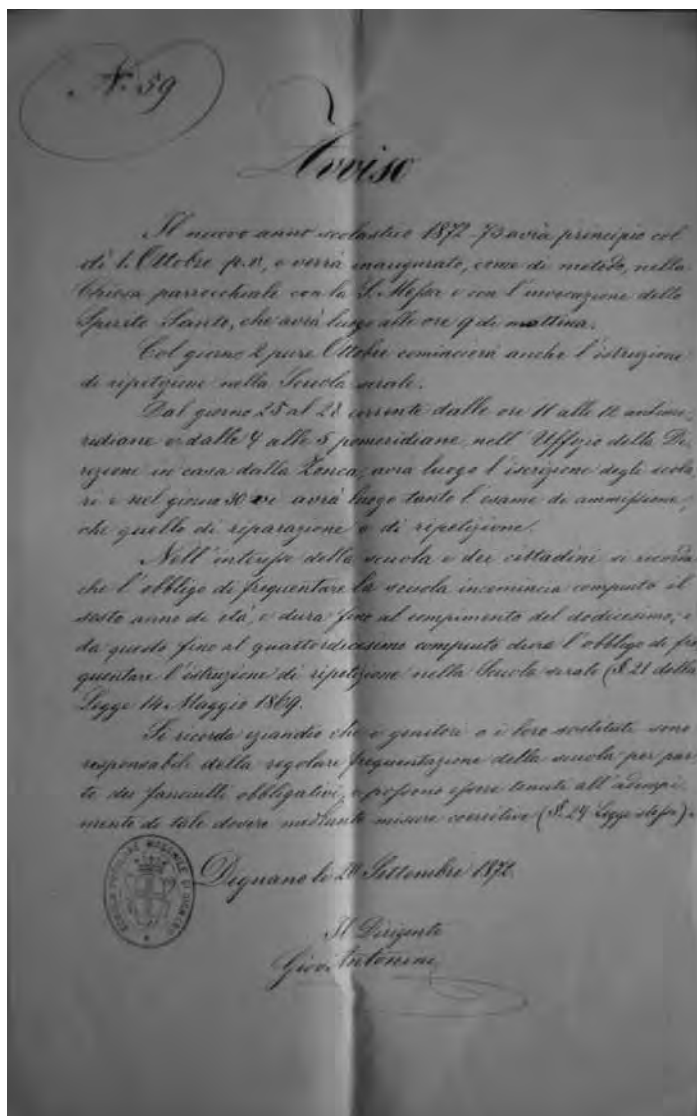 N. 59
Avviso
Il nuovo anno scolastico 1872-73 avrà principio col
dì 1. Ottobre p.v., e verrà inaugurato, come di metodo, nella
Chiesa parrocchiale con la S. Messa e con l'invocazione dello
Spirito Santo, che avrà luogo alle ore 9 di mattina.
Col giorno 2 pure Ottobre comincierà anche l'istruzione
di ripetizione nella Scuola serale.
Dal giorno 25 al 28 corrente dalle ore 11 alle 12 antime-
ridiane e dalle 4 alle 5 pomeridiane, nell'Uffizio della Di-
rezione in casa dalla Zonca, avrà luogo l'iscrizione degli scola-
ri e nel giorno 30 avrà luogo tanto l'esame di ammissione,
che quello di riparazione e di ripetizione.
Nell'interesse della scuola e dei cittadini si ricorda
che l'obbligo di frequentare la scuola incomincia compiuto il
sesto anno di età, e dura fino al compimento del dodicesimo; e
da questo fino al quattordicesimo compiuto dura l'obbligo di fre
quentare l'istruzione di ripetizione nella Scuola serale (§. 21 della
Legge 14 Maggio 1869.
Si ricorda eziandio che i genitori o i loro sostituti sono
responsabili della regolare frequentazione della scuola per par
te dei fanciulli obbligativi, e possono essere tenuti all'adempi-
mento di tale dovere mediante misure coercitive (§. 24 Legge stessa).
Dignano li 20 Settembre 1872.
SCUOLA POPOLARE MASCHILE DI DIGNANO
Il Dirigente
Giov. Antonini